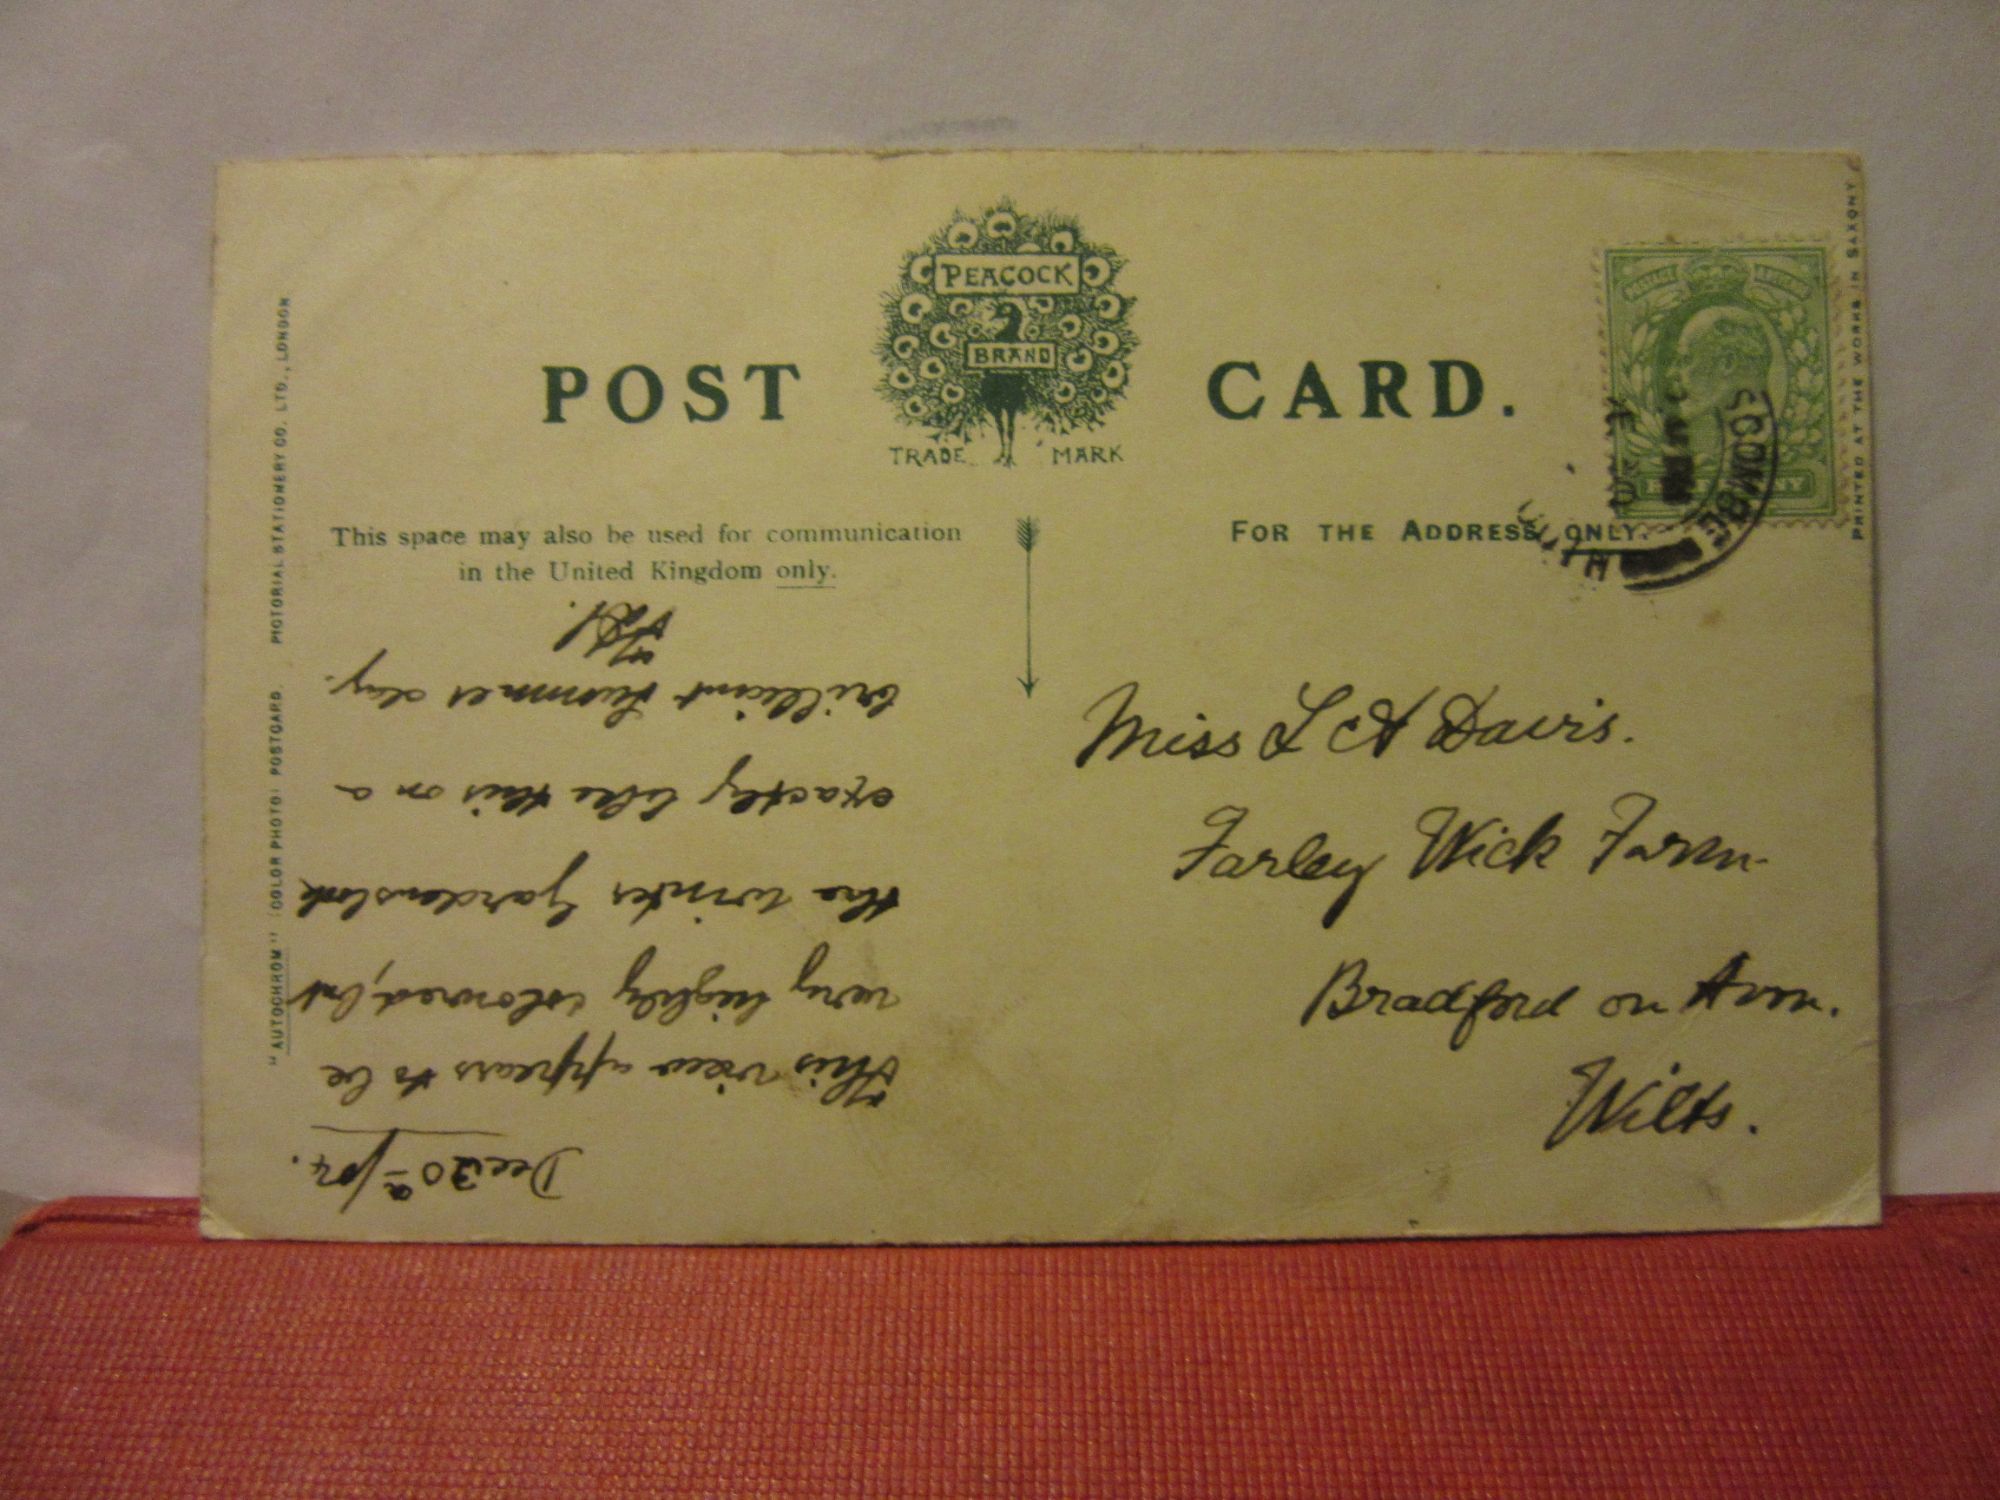 POST CARD.
PEACOCK
BRAND
TRADE MARK
This space may also be used for communication
in the United Kingdom only.
FOR THE ADDRESS ONLY.
"AUTOCHROM" (COLOR PHOTO) POSTCARD. PICTORIAL STATIONERY CO. LTD., LONDON
PRINTED AT THE WORKS IN SAXONY
POSTAGE & REVENUE
HALFPENNY
COOMBE
Dec 30
This view appears to be
very highly coloured, but
the winter gardens look
exactly like this on a
brilliant summer day.
Miss L A Davis.
Farley Wick Farm
Bradford on Avon.
Wilts.